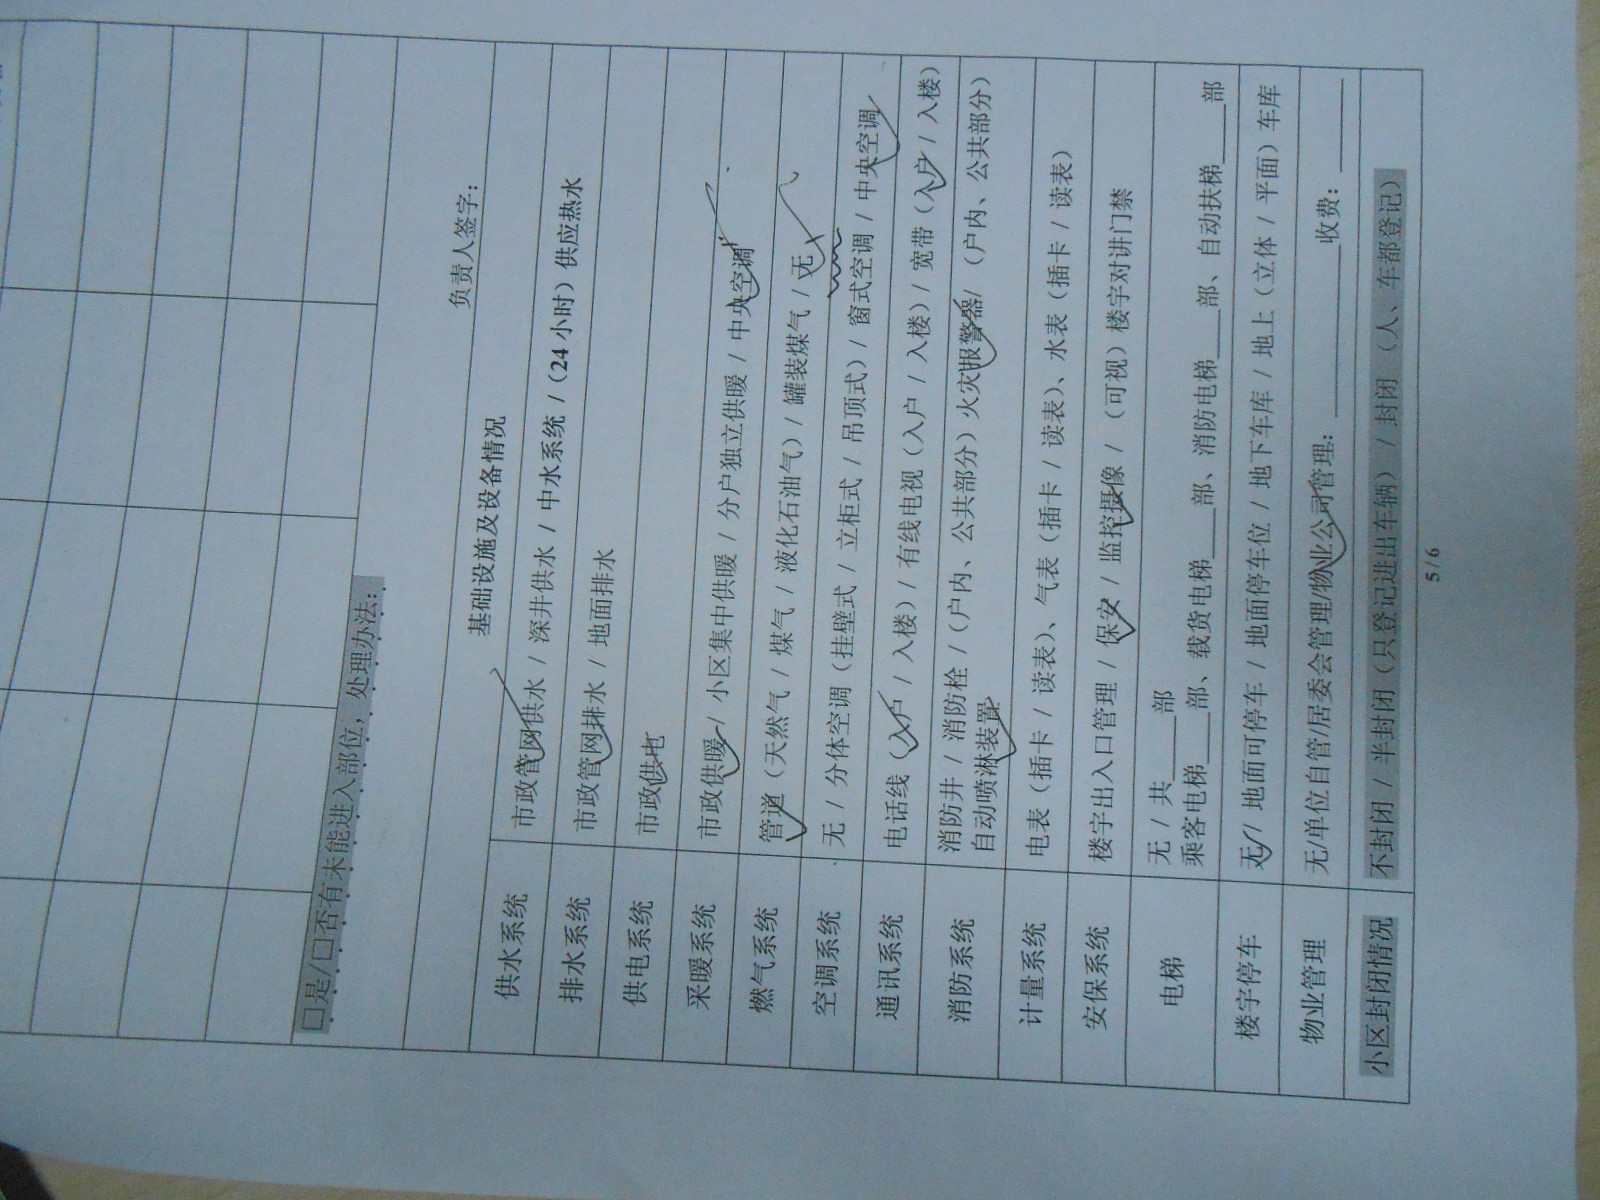 □是/□否有未能进入部位，处理办法：
负责人签字：
基础设施及设备情况
供水系统 市政管网供水 / 深井供水 / 中水系统 /（24 小时）供应热水
排水系统 市政管网排水 / 地面排水
供电系统 市政供电
采暖系统 市政供暖 / 小区集中供暖 / 分户独立供暖 / 中央空调
燃气系统 管道（天然气 / 煤气 / 液化石油气）/ 罐装煤气 / 无
空调系统 无 / 分体空调（挂壁式 / 立柜式 / 吊顶式）/ 窗式空调 / 中央空调
通讯系统 电话线（入户 / 入楼）/ 有线电视（入户 / 入楼）/ 宽带（入户 / 入楼）
消防系统 消防井 / 消防栓 /（户内、公共部分）火灾报警器/（户内、公共部分）
自动喷淋装置
计量系统 电表（插卡 / 读表）、气表（插卡 / 读表）、水表（插卡 / 读表）
安保系统 楼宇出入口管理 / 保安 / 监控摄像 /（可视）楼宇对讲门禁
电梯 无 / 共____部
乘客电梯____部、载货电梯____部、消防电梯____部、自动扶梯____部
楼宇停车 无 / 地面可停车 / 地面停车位 / 地下车库 / 地上（立体 / 平面）车库
物业管理 无/单位自管/居委会管理/物业公司管理：____________收费：______
小区封闭情况 不封闭 / 半封闭（只登记进出车辆） / 封闭 （人、车都登记）
5 / 6